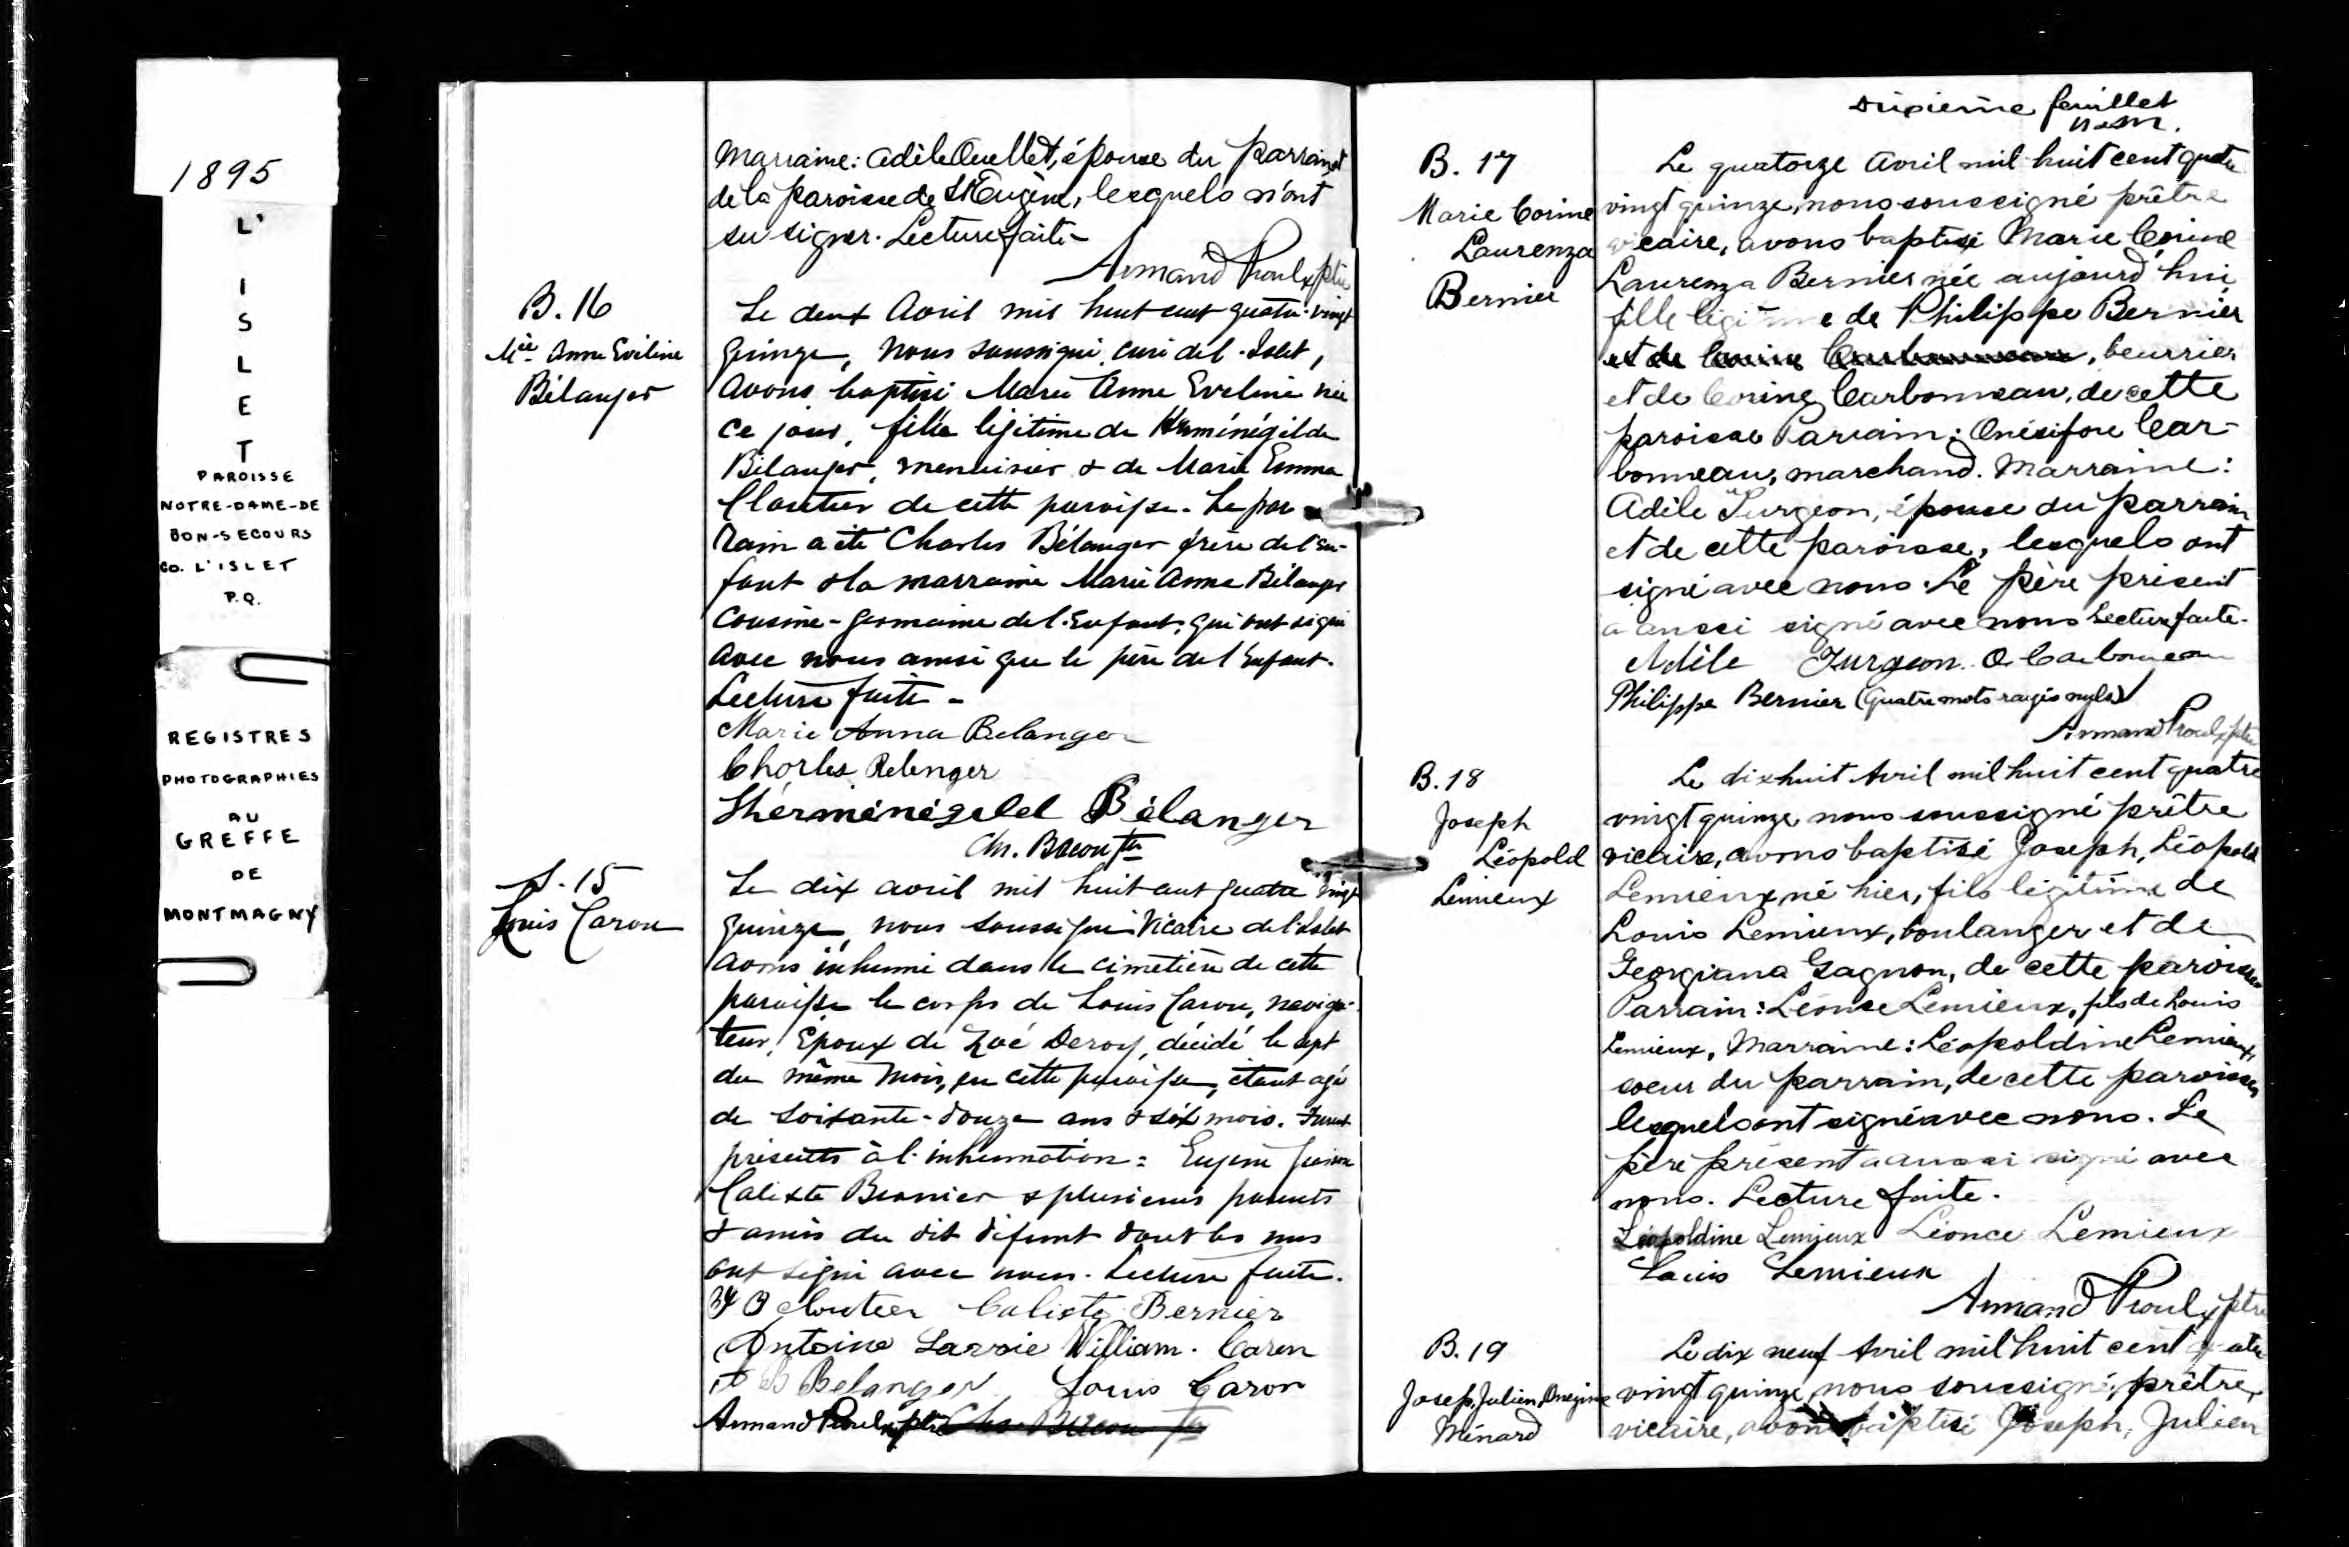 1895
L'
I
S
L
E
T
PAROISSE
NOTRE-DAME-DE
BON-SECOURS
CO. L'ISLET
P.Q.
REGISTRES
PHOTOGRAPHIES
AU
GREFFE
DE
MONTMAGNY
Marraine: Adèle Ouellet, épouse du parrain et
de la paroisse de St Eugène, lesquels n'ont
su signer. Lecture faite -
Armand Proulx ptre
B. 16
Mie Anne Eveline
Bélanger
Le deux Avril mil huit cent quatre-vingt
quinze, nous soussigné, curé de l'Islet,
avons baptisé Marie Anne Eveline née
ce jour, fille légitime de Herménégilde
Bélanger, menuisier & de Marie Emma
Cloutier de cette paroisse. Le par
rain a été Charles Bélanger frère de l'en-
fant & la marraine Marie Anna Bélanger
cousine-germaine de l'enfant, qui ont signé
avec nous ainsi que le père de l'enfant.
Lecture faite -
Marie Anna Belanger
Charles Belenger
Herménégilde Bélanger
Ch. Bacon ptre
S. 15
Louis Caron
Le dix avril mil huit cent quatre vingt
quinze, nous soussigné Vicaire de l'Islet
avons inhumé dans le cimetière de cette
paroisse le corps de Louis Caron, naviga-
teur, Epoux de Zoé Deroy, décédé le sept
du même mois, en cette paroisse, étant agé
de soixante-douze ans & six mois. Furent
présents à l'inhumation: Eugène
Calixte Bernier & plusieurs parents
& amis du dit défunt dont les uns
ont signé avec nous. Lecture faite.
Cloutier Calixte Bernier
Antoine Lavoie William. Caron
B Belanger Louis Caron
Armand Proulx ptre Chs Bacon ptre
sixième feuillet
B. 17
Marie Corine
Laurenza
Bernier
Le quatorze Avril mil huit cent quatre
vingt quinze, nous soussigné prêtre
vicaire, avons baptisé Marie Corine
Laurenza Bernier née aujourd'hui
fille légitime de Philippe Bernier
et de , beurrier
et de Corine Carbonneau, de cette
paroisse Parrain: Onésifore Car-
bonneau, marchand. Marraine:
Adèle Turgeon, épouse du parrain
et de cette paroisse, lesquels ont
signé avec nous. Le père présent
a aussi signé avec nous Lecture faite.
Adèle Turgeon. O Carbonneau
Philippe Bernier (Quatre mots rayés nuls)
Armand Proulx ptre
B. 18
Joseph
Léopold
Lemieux
Le dix huit Avril mil huit cent quatre
vingt quinze nous soussigné prêtre
vicaire, avons baptisé Joseph, Léopold
Lemieux né hier, fils légitime de
Louis Lemieux, boulanger et de
Georgiana Gagnon, de cette paroisse
Parrain: Léonce Lemieux, fils de Louis
Lemieux, Marraine: Léopoldine Lemieux,
soeur du parrain, de cette paroisse
lesquels ont signé avec nous. Le
père présent a aussi signé avec
nous. Lecture faite.
Léopoldine Lemieux Léonce Lemieux
Louis Lemieux
Armand Proulx ptre
B. 19
Joseph, Julien, Onezime
Ménard
Le dix neuf Avril mil huit cent quatre
vingt quinze nous soussigné, prêtre,
vicaire, avons baptisé Joseph, Julien